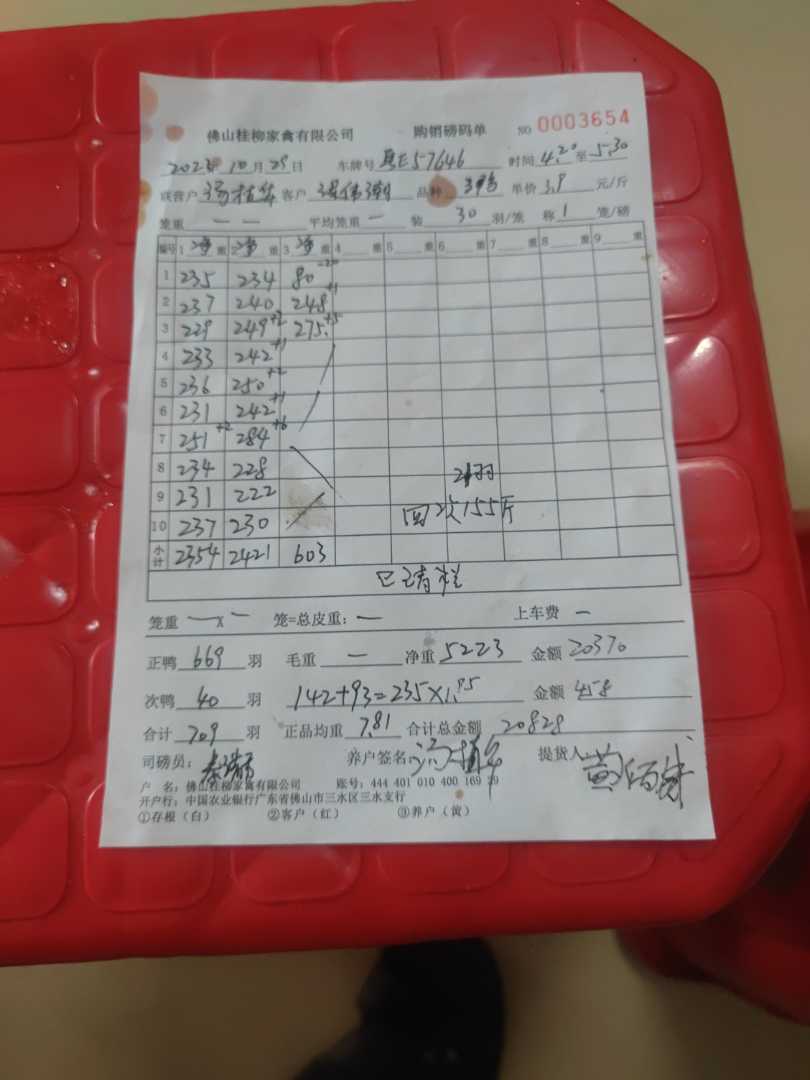 佛山桂柳家禽有限公司 购销磅码单 NO 0003654
2023年10月29日 车牌号 粤E57646 时间 4.20至5.30
联营户 客户 品种 单价 3.9 元/斤
笼重 一 一 平均笼重 一 装 30 羽/笼 称 1 笼/磅
编号 1 净重 2 净重 3 净重 4 重 5 重 6 重 7 重 8 重 9 重
1 235 234 80
2 237 240 248 +1
3 229 249 +2 275 +5
4 233 242 +1
5 236 250 +2
6 231 242 +1
7 251 +2 284 +6
8 234 228
9 231 222
10 237 230
小计 2354 2421 603
21羽
回次155斤
已清栏
笼重 一 x 一 笼=总皮重: 一 上车费 一
正鸭 669 羽 毛重 一 净重 5223 金额 20370
次鸭 40 羽 142+93=235×1.95 金额 458
合计 709 羽 正品均重 7.81 合计总金额 20828
司磅员: 养户签名: 提货人:
户 名: 佛山桂柳家禽有限公司 账号: 444 401 010 400 169 29
开户行: 中国农业银行广东省佛山市三水区三水支行
①存根(白) ②客户(红) ③养户(黄)